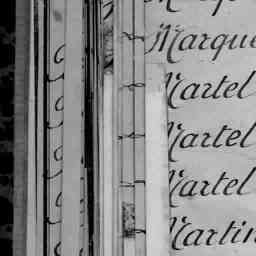 Marque
Martel
Martel
Martel
Martin